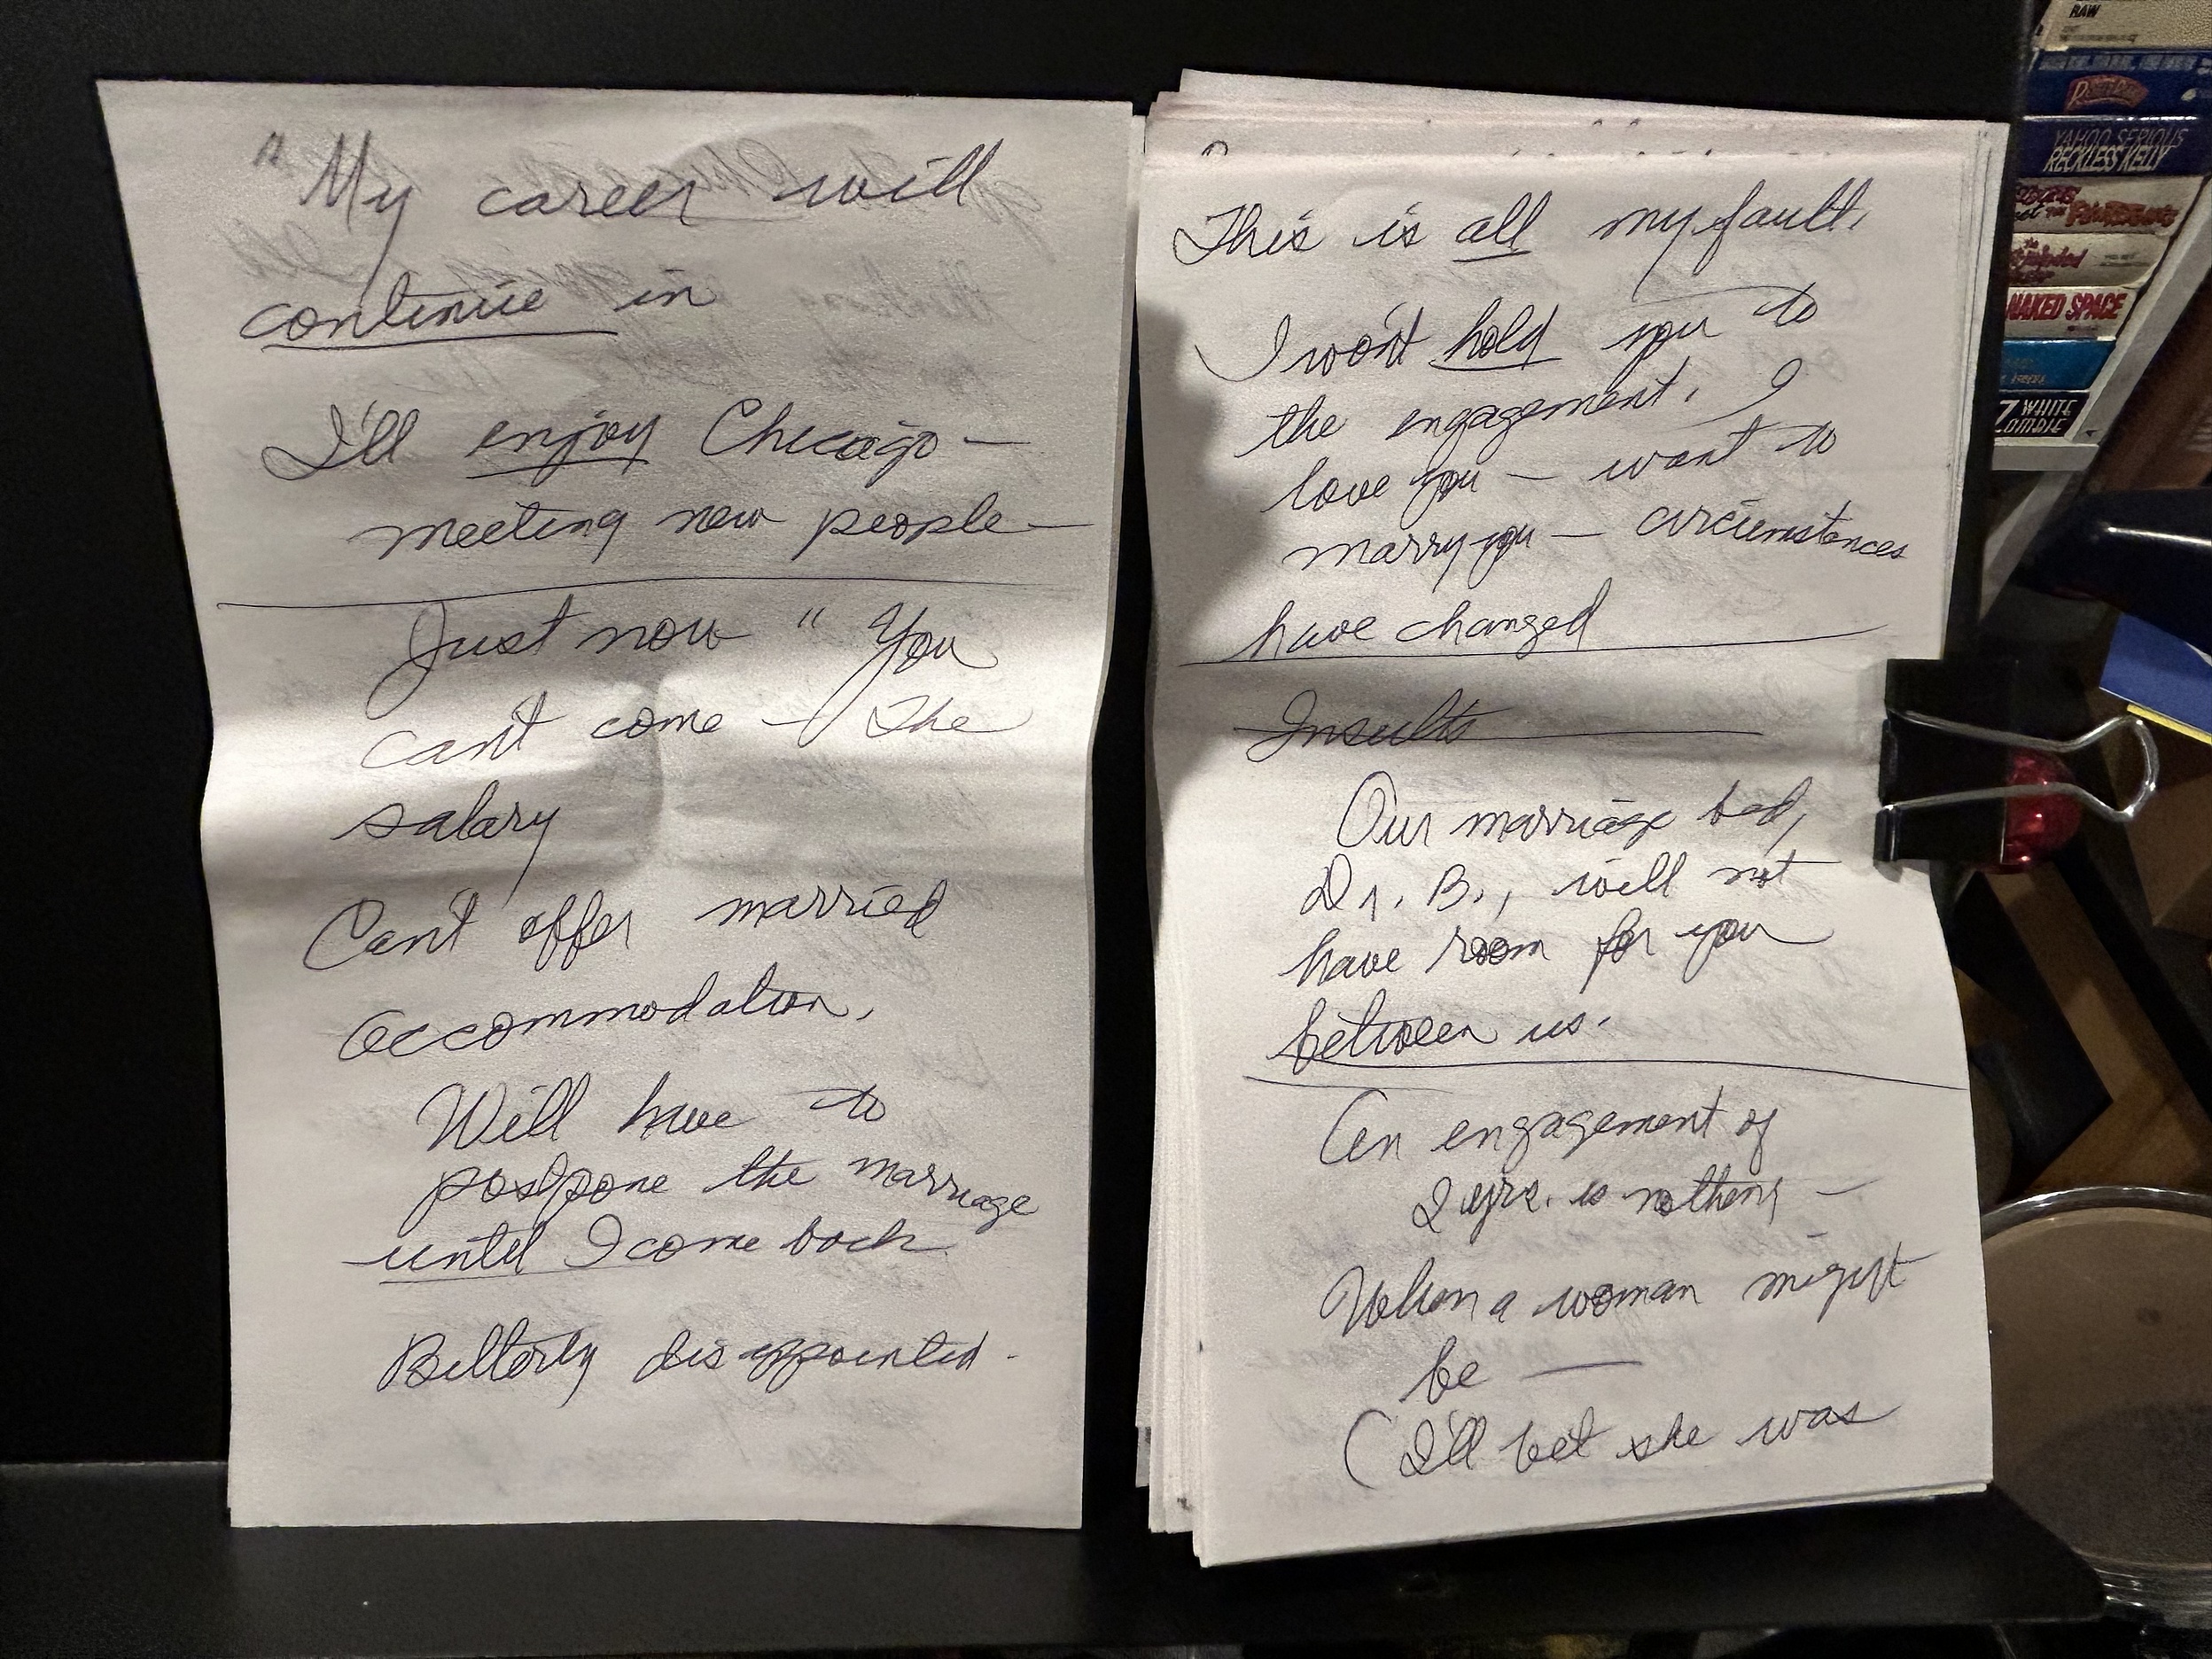 " My career will
continue in
I'll enjoy Chicago —
meeting new people —
Just now " You
can't come — The
salary
Can't offer married
accommodation,
Will have to
postpone the marriage
until I come back
Bitterly disappointed.
This is all my fault.
I won't hold you to
the engagement. I
love you — want to
marry you — circumstances
have changed
Insults
Our marriage bed,
Dr. B., will not
have room for you
between us.
An engagement of
2 yrs. is nothing —
When a woman might
be —
( I'll bet she was
RAW
YAHOO SERIOUS
RECKLESS KELLY
NAKED SPACE
WHITE
ZOMBIE